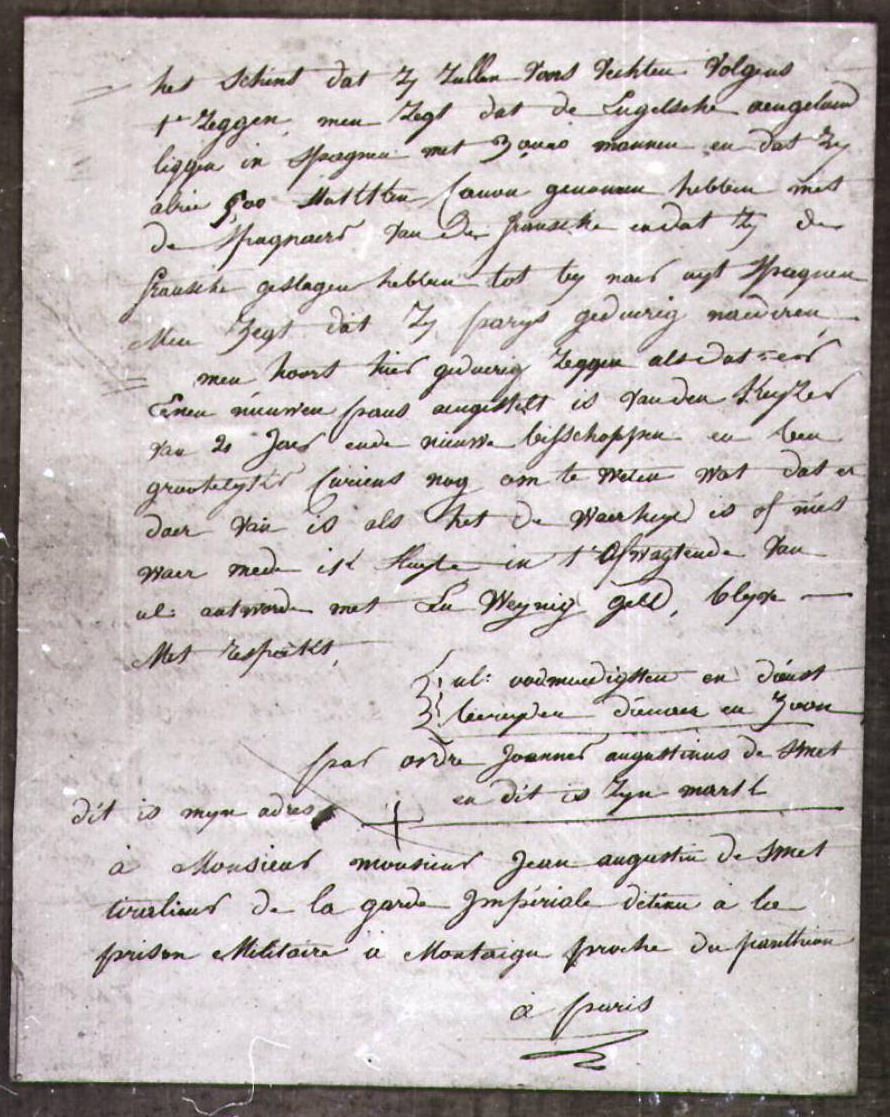 het schint dat zy zullen voor vechten volgens
t' zeggen, men zegt dat de Engelsche aengeland
liggen in Spagnen met 30,000 mannen en dat zy
500 stukken Canon genomen hebben met
de Spagnaers van de fransche en dat zy de
fransche geslagen hebben tot by naer uyt Spagnen
Men zegt dat zy parys geduerig naederen,
men hoort hier geduerig zeggen als dat er
Eenen nieuwen paus aengestelt is van den Keyzer
van Jaer ende nieuwe bisschoppen en ben
grootelyks Curieus nog om te weten wat dat er
daer van is als het de Waerheyd is of niet
Waer mede ik sluyte in t' afwagtende van
ul: antworde met En Weynig geld, blyve
Met respekt,
ul: oodmoedigsten en dienst
bereyden dienaer en Zoon
par ordre Joannes augustinus de Smet
en dit is zyn mark
dit is myn adres +
à Monsieur monsieur Jean augustin de Smet
tiralieur de la garde Impériale détenu a la
prison Militaire a Montaigu proche du panthion
a paris